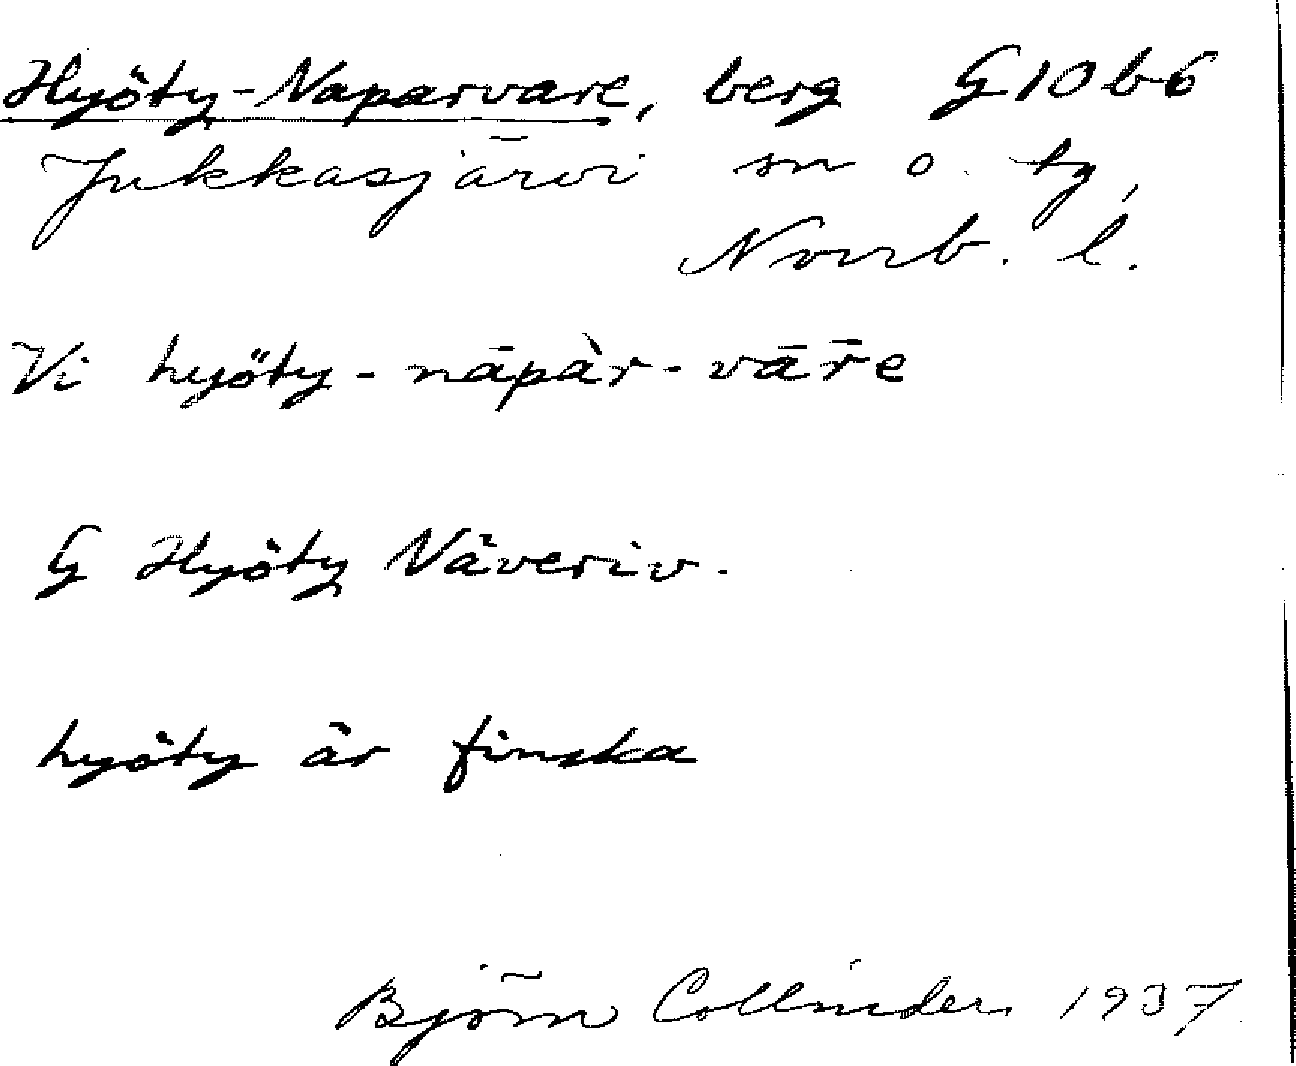 Hyöty-Naparvare, berg G10b6
Jukkasjärvi sn o. tg,
Norrb. l.
Vi hyöty-nāpàr-vār̄e
G Hyöty Näveriv.
hyöty är finska
Björn Collinder 1937